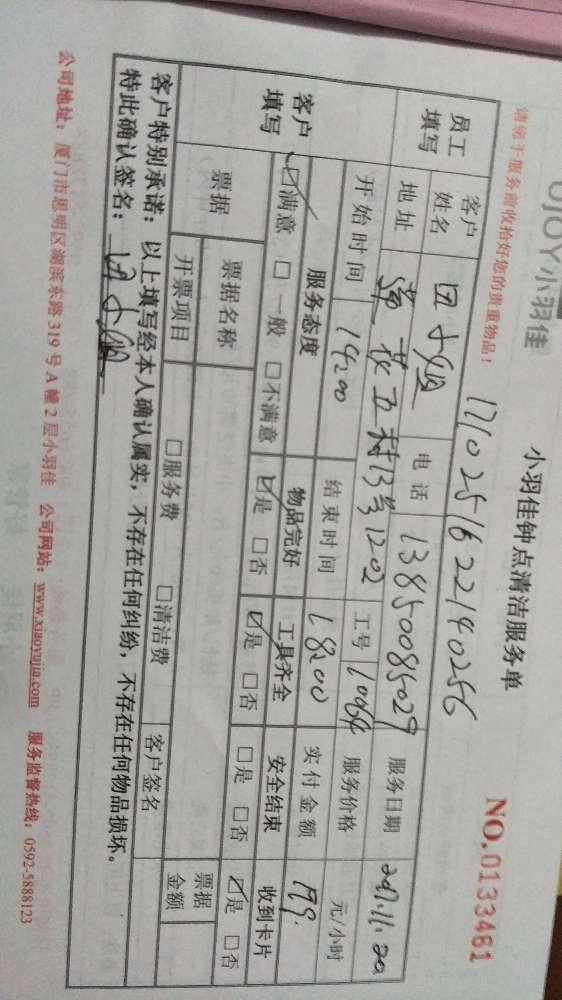 UJOY小羽佳
小羽佳钟点清洁服务单
NO.0133481
请您于服务前收拾好您的贵重物品！
1710251622140256
员工填写 客户姓名 电话 13850085029 服务日期 2017.11.20
地址 莲花五村13号1202 工号 服务价格 元/小时
开始时间 14:00 结束时间 18:00 实付金额 199.
客户填写 服务态度 物品完好 工具齐全 安全结束 收到卡片
☑满意 □一般 □不满意 ☑是 □否 ☑是 □否 □是 □否 ☑是 □否
票据 票据名称 票据金额
开票项目 □服务费 □清洁费 客户签名
客户特别承诺：以上填写经本人确认属实，不存在任何纠纷，不存在任何物品损坏。
特此确认签名：
公司地址：厦门市思明区湖滨东路319号A幢2层小羽佳 公司网站：www.xiaoyujia.com 服务监督热线：0592-5888123